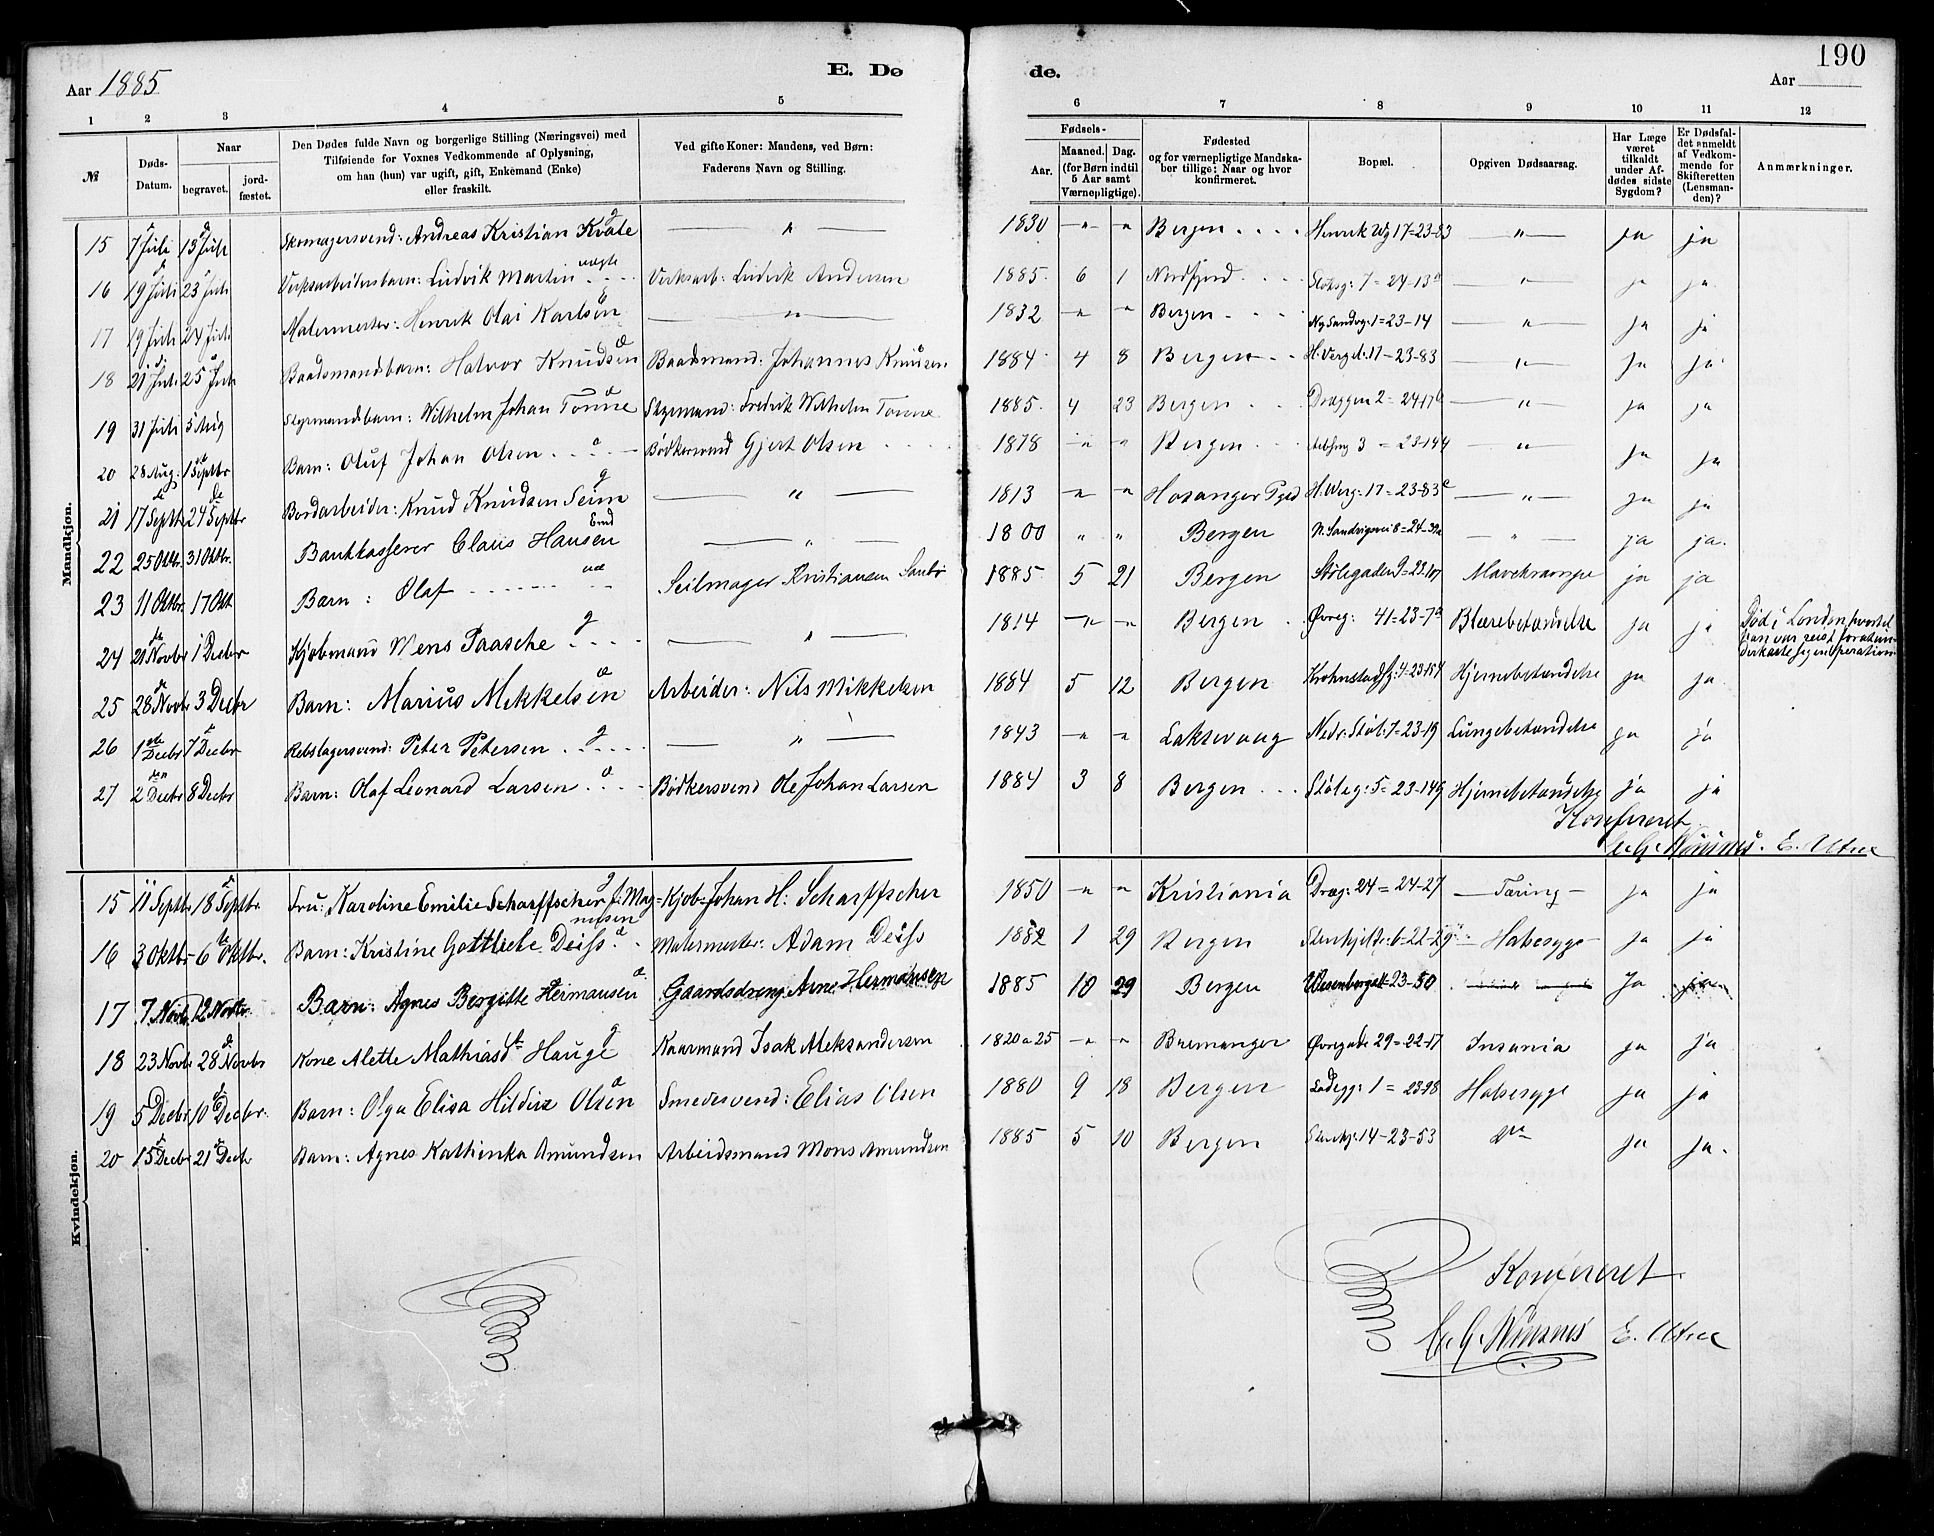 190
Aar 1885
E. Dø
de.
Aar
1 2 3 4 5 6 7 8 9 10 11 12
№
Døds-Datum.
Naar
begravet.
jord-fæstet.
Den Dødes fulde Navn og borgerlige Stilling (Næringsvei) med
Tilføiende for Voxnes Vedkommende af Oplysning,
om han (hun) var ugift, gift, Enkemand (Enke)
eller fraskilt.
Ved gifte Koner: Mandens, ved Børn:
Faderens Navn og Stilling.
Fødsels-
Aar.
Maaned. Dag.
(for Børn indtil
5 Aar samt
Værnepligtige).
Fødested
og for værnepligtige Mandska-
ber tillige: Naar og hvor
konfirmeret.
Bopæl.
Opgiven Dødsaarsag.
Har Læge
været
tilkaldt
under Af-
dødes sidste
Sygdom?
Er Dødsfal-
det anmeldt
af Vedkom-
mende for
Skifteretten
(Lensman-
den)?
Anmærkninger.
Mandkjøn.
15 7 Juli 13 Juli Skomagersvend: Andreas Kristian Kvale g — " — 1830 " " Bergen Henrik Wg 17=23-83 — " — ja ja
16 19 Juli 23 Juli Verksarbeidersbarn: Ludvik Martin uægte Verksarb: Ludvik Andersen 1885 6 1 Nordfjord 7=24-13 — " — ja ja
17 19 Juli 24 Juli Malermester: Henrik Olai Karlsen — " — 1832 " " Bergen Ny Sandvg: 1=23-14 — " — ja ja
18 21 Juli 25 Juli Baadsmandbarn: Halvor Knudsen Baadsmand: Johannes Knudsen 1884 4 8 Bergen H. Verg. 17-23-83 — " — ja ja
19 31 Juli 5 Aug Styrmandsbarn: Wilhelm Johan Tonne Styrmand: Fredrik Wilhelm Tonne 1885 4 23 Bergen Dræggen 2=24-17 — " — ja ja
20 28 Aug: 1 Septbr Barn: Oluf Johan Olsen Bødkersvend Gjert Olsen 1878 " " Bergen 3=23-144 — " — ja ja
21 17 Septbr 24 Septbr Bordarbeider: Knud Knudsen Seim g — " — 1813 " " Hosanger Pgd H. Werg: 17=23-83 — " — ja ja
22 25 Oktbr. 31 Oktbr. Bankkasserer Claus Hansen Emd — " — 1800 " " Bergen N. Sandvigsvei 8=24-32a — " — ja ja.
23 11 Oktbr. 17 Okt Barn: Olaf Seilmager Kristiansen 1885 5 21 Bergen Stølegaden 9=23-107 Mavekrampe ja ja
24 21 Novbr 1 Decbr Kjøbmand Mens Paasche g — " — 1814 " " Bergen Øvreg: 41=23-7a Blærebetændelse ja ja Død i London, hvortil
han var reist for at un-
derkaste sig en Operation
25 28 Novbr 3 Decbr Barn: Marius Mikkelsen Arbeider: Nils Mikkelsen 1884 5 12 Bergen 4-23-154 Hjernebetændelse ja ja
26 1 Decbr 7 Decbr Rebslagersvend: Peter Petersen g — " — 1843 " " Laksevaag Nedr: Støl: 7=23-19 Lungebetændelse ja ja
27 2 Decbr 8 Decbr Barn: Olaf Leonard Larsen Bødkersvend Ole Johan Larsen 1884 3 8 Bergen Støleg: 5=23-149 Hjernebetændelse ja ja
Konfereret
E. Utne
Kvindekjøn.
15 11 Septbr 18 Septbr. Fru: Karoline Emilie Scharffscher f: Mag-
nusen g Kjøb: Johan H: Scharffscher 1850 " " Kristiania Dræg: 24=24-27 — Tæring — ja ja
16 3 Oktbr 6 Oktbr. Barn: Kristine Gottliebe Deiss Malermester: Adam Deiss 1882 1 29 Bergen 6-22-29 Halsesyge ja ja
17 7 Novb. 12 Novbr. Barn: Agnes Bergitte Hermansen Gaardsdreng Arne Hermansen 1885 10 29 Bergen 23-50 Ja ja
18 23 Novbr 28 Novbr Kone Alette Mathiasdtr Hauge g Kaarmand Isak Aleksandersen 1820 a 25 " " Bremanger Øvregade 29=22-17 Insania ja ja
19 5 Decbr 10 Decbr. Barn: Olga Elisa Olsen Smedesvend: Elias Olsen 1880 9 18 Bergen Ladegg: 1=23-98 Halsesyge ja ja
20 15 Decbr 21 Decbr Barn: Agnes Kathinka Amundsen Arbeidsmand Mons Amundsen 1885 5 10 Bergen 14-23-53 do ja ja.
Konfereret
E. Utne